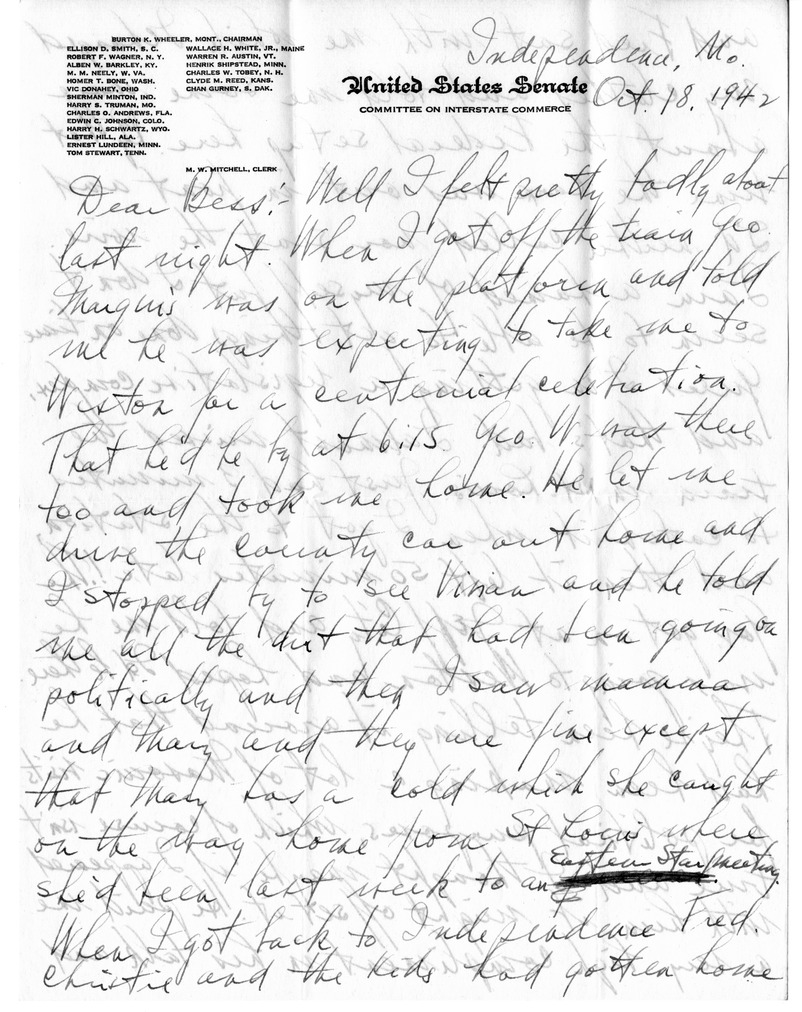 BURTON K. WHEELER, MONT., CHAIRMAN
ELLISON D. SMITH, S. C.
ROBERT F. WAGNER, N. Y.
ALBEN W. BARKLEY, KY.
M. M. NEELY, W. VA.
HOMER T. BONE, WASH.
VIC DONAHEY, OHIO
SHERMAN MINTON, IND.
HARRY S. TRUMAN, MO.
CHARLES O. ANDREWS, FLA.
EDWIN C. JOHNSON, COLO.
HARRY H. SCHWARTZ, WYO.
LISTER HILL, ALA.
ERNEST LUNDEEN, MINN.
TOM STEWART, TENN.
WALLACE H. WHITE, JR., MAINE
WARREN R. AUSTIN, VT.
HENRIK SHIPSTEAD, MINN.
CHARLES W. TOBEY, N. H.
CLYDE M. REED, KANS.
CHAN GURNEY, S. DAK.
M. W. MITCHELL, CLERK
United States Senate
COMMITTEE ON INTERSTATE COMMERCE
Independence, Mo.
Oct. 18, 1942
Dear Bess:- Well I felt pretty badly about
last night. When I got off the train Geo.
Marquis was on the platform and told
me he was expecting to take me to
Weston for a centennial celebration.
That he'd be by at 6:15. Geo. W. was there
too and took me home. He let me
drive the county car out home and
I stopped by to see Vivian and he told
me all the dirt that had been going on
politically and then I saw mamma
and Mary and they are fine except
that Mary has a cold which she caught
on the way home from St Louis where
she'd been last week to an Eastern Star meeting.
When I got back to Independence Fred.
Christie and the kids had gotten home